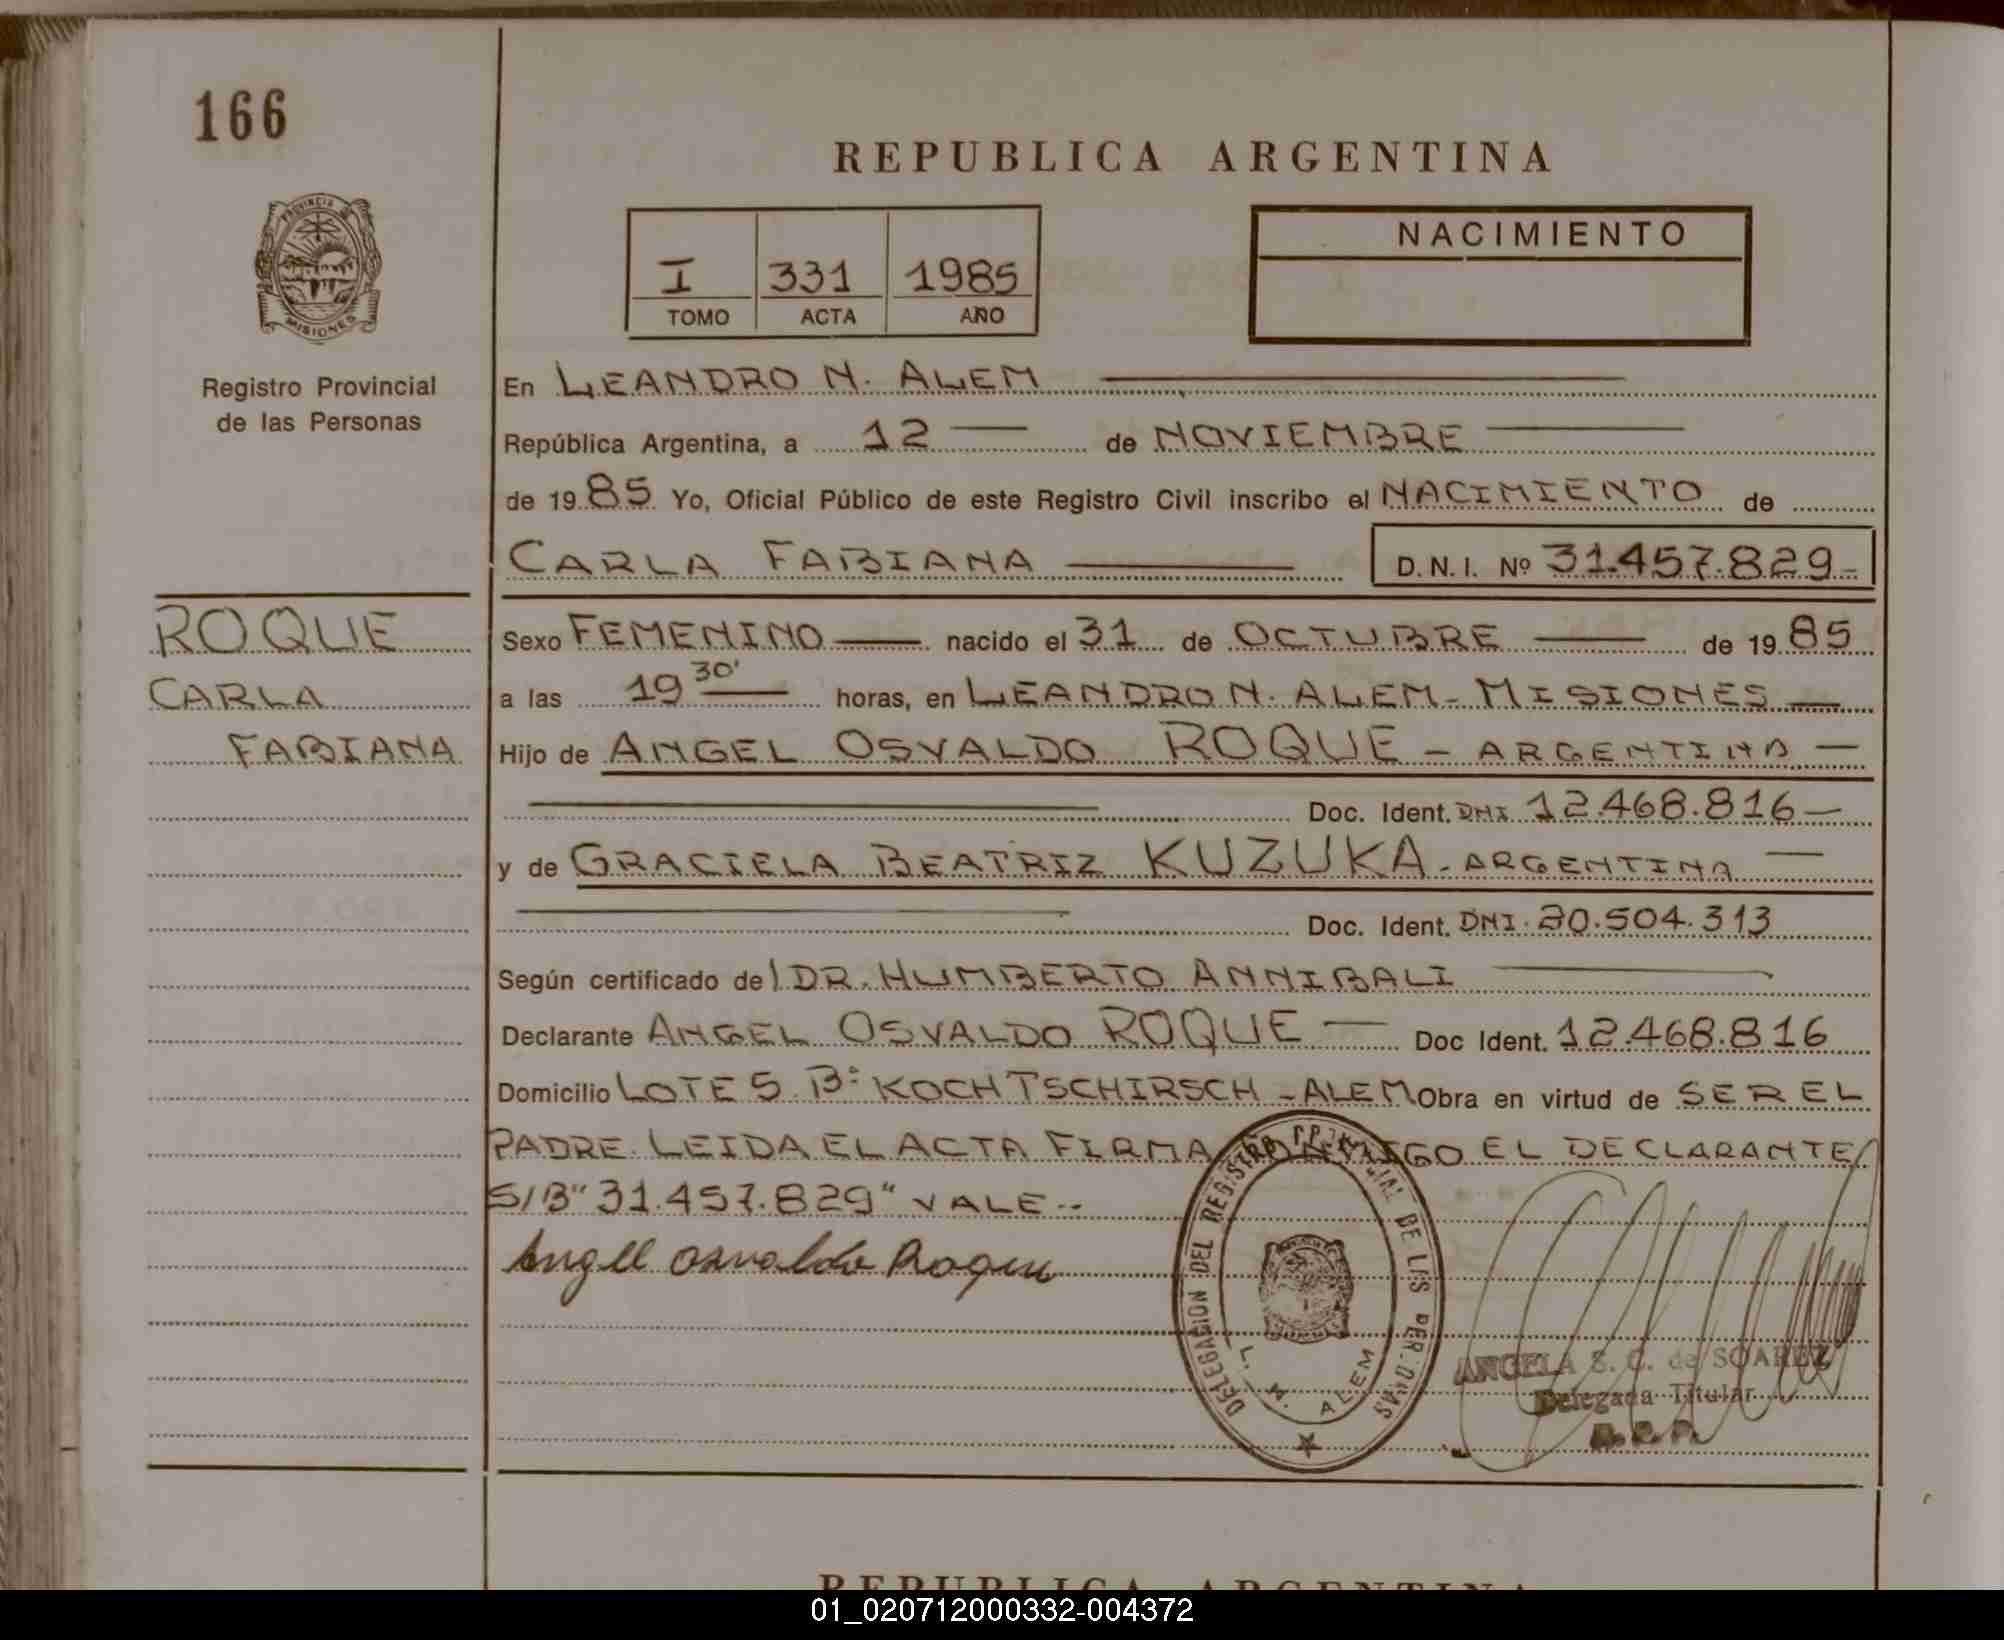 166
REPUBLICA ARGENTINA
PROVINCIA DE
MISIONES
I 331 1985
TOMO ACTA AÑO
NACIMIENTO
Registro Provincial
de las Personas
En LEANDRO N. ALEM
República Argentina, a 12 de NOVIEMBRE
de 1985 Yo, Oficial Público de este Registro Civil inscribo el NACIMIENTO de
CARLA FABIANA D.N.I. Nº 31.457.829-
ROQUE
CARLA
FABIANA
Sexo FEMENINO nacido el 31 de OCTUBRE de 1985
a las 19 30' horas, en LEANDRO N. ALEM - MISIONES
Hijo de ANGEL OSVALDO ROQUE - ARGENTINO
Doc. Ident. DNI 12.468.816
y de GRACIELA BEATRIZ KUZUKA - ARGENTINA
Doc. Ident. DNI. 20.504.313
Según certificado del DR. HUMBERTO ANNIBALI
Declarante ANGEL OSVALDO ROQUE Doc Ident. 12.468.816
Domicilio LOTE 5 Bº KOCH TSCHIRSCH - ALEM Obra en virtud de SER EL
PADRE. LEIDA EL ACTA FIRMA CONMIGO EL DECLARANTE
S/B "31.457.829" VALE--
Angel Osvaldo Roque
DELEGACION DEL REGISTRO PROVINCIAL DE LAS PERSONAS
L. N. ALEM
ANGELA S. C. de SOAREZ
Delegada Titular
R.P.P.
REPUBLICA ARGENTINA
01_020712000332-004372